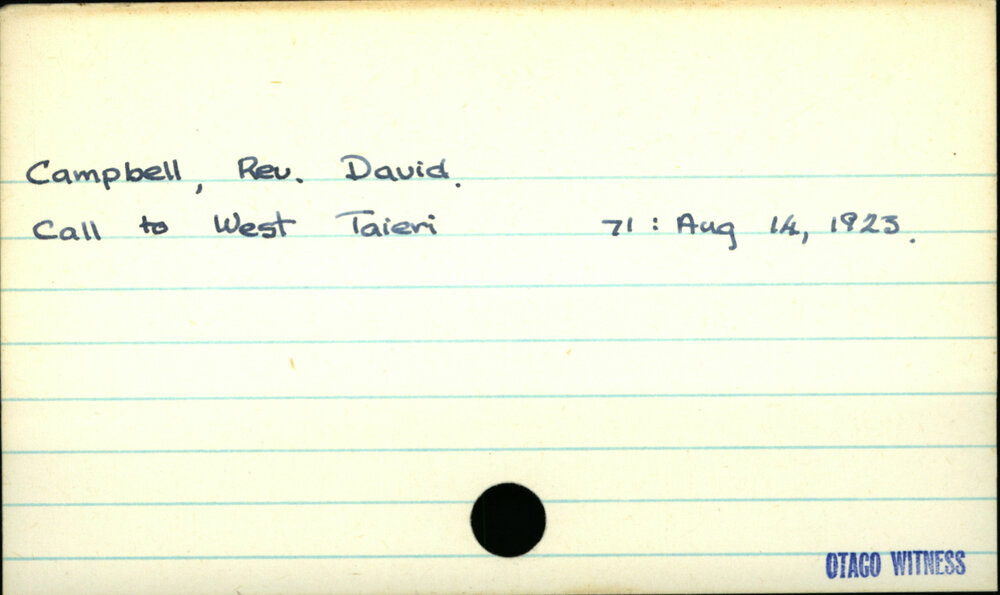 Campbell, Rev. David.
Call to West Taieri 71 : Aug 14, 1923.
OTAGO WITNESS